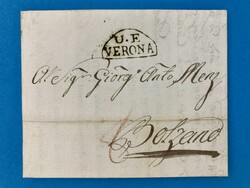 U.F.
VERONA
Al Sigr Giorg Anto Menz
Bolzano